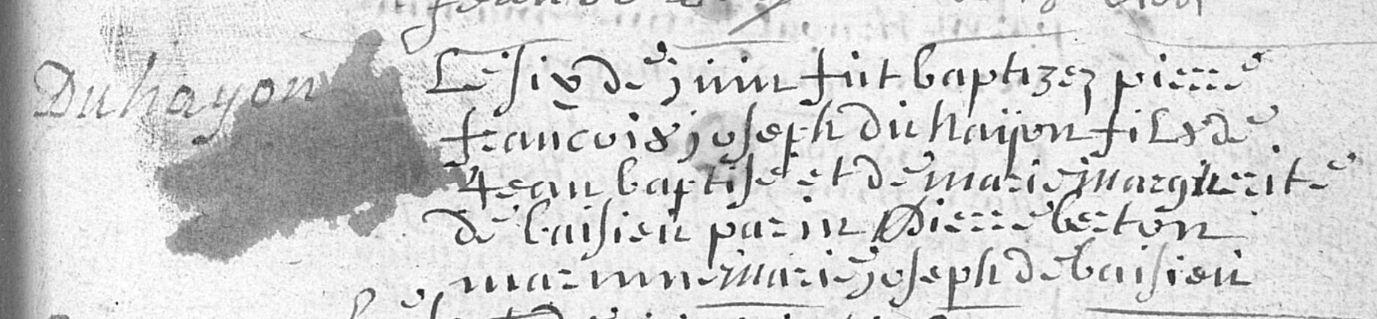 Duhayon
Le six de juin fut baptizez pierre
francois joseph du haÿon fils de
Jean baptise et de marie marguerite
de baisieu parin Pierre berton
marinne marie joseph de baisieu